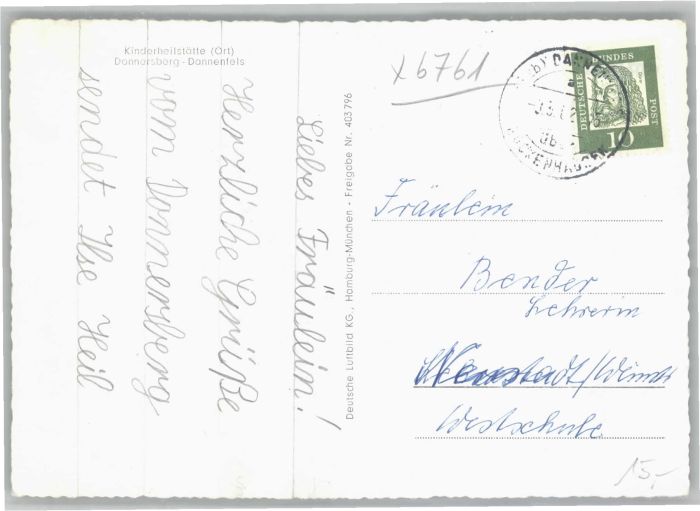 Kinderheilstätte (Ort)
Donnersberg - Dannenfels
Liebes Fräulein!
Herzliche Grüße
vom Donnersberg
sendet Ilse Heil
Deutsche Luftbild KG., Hamburg-München - Freigabe Nr. 403796
x6761
DEUTSCHE BUNDESPOST
10
Fräulein
Bender
Lehrerin
Neustadt/Weinstr
Westschule
15,-